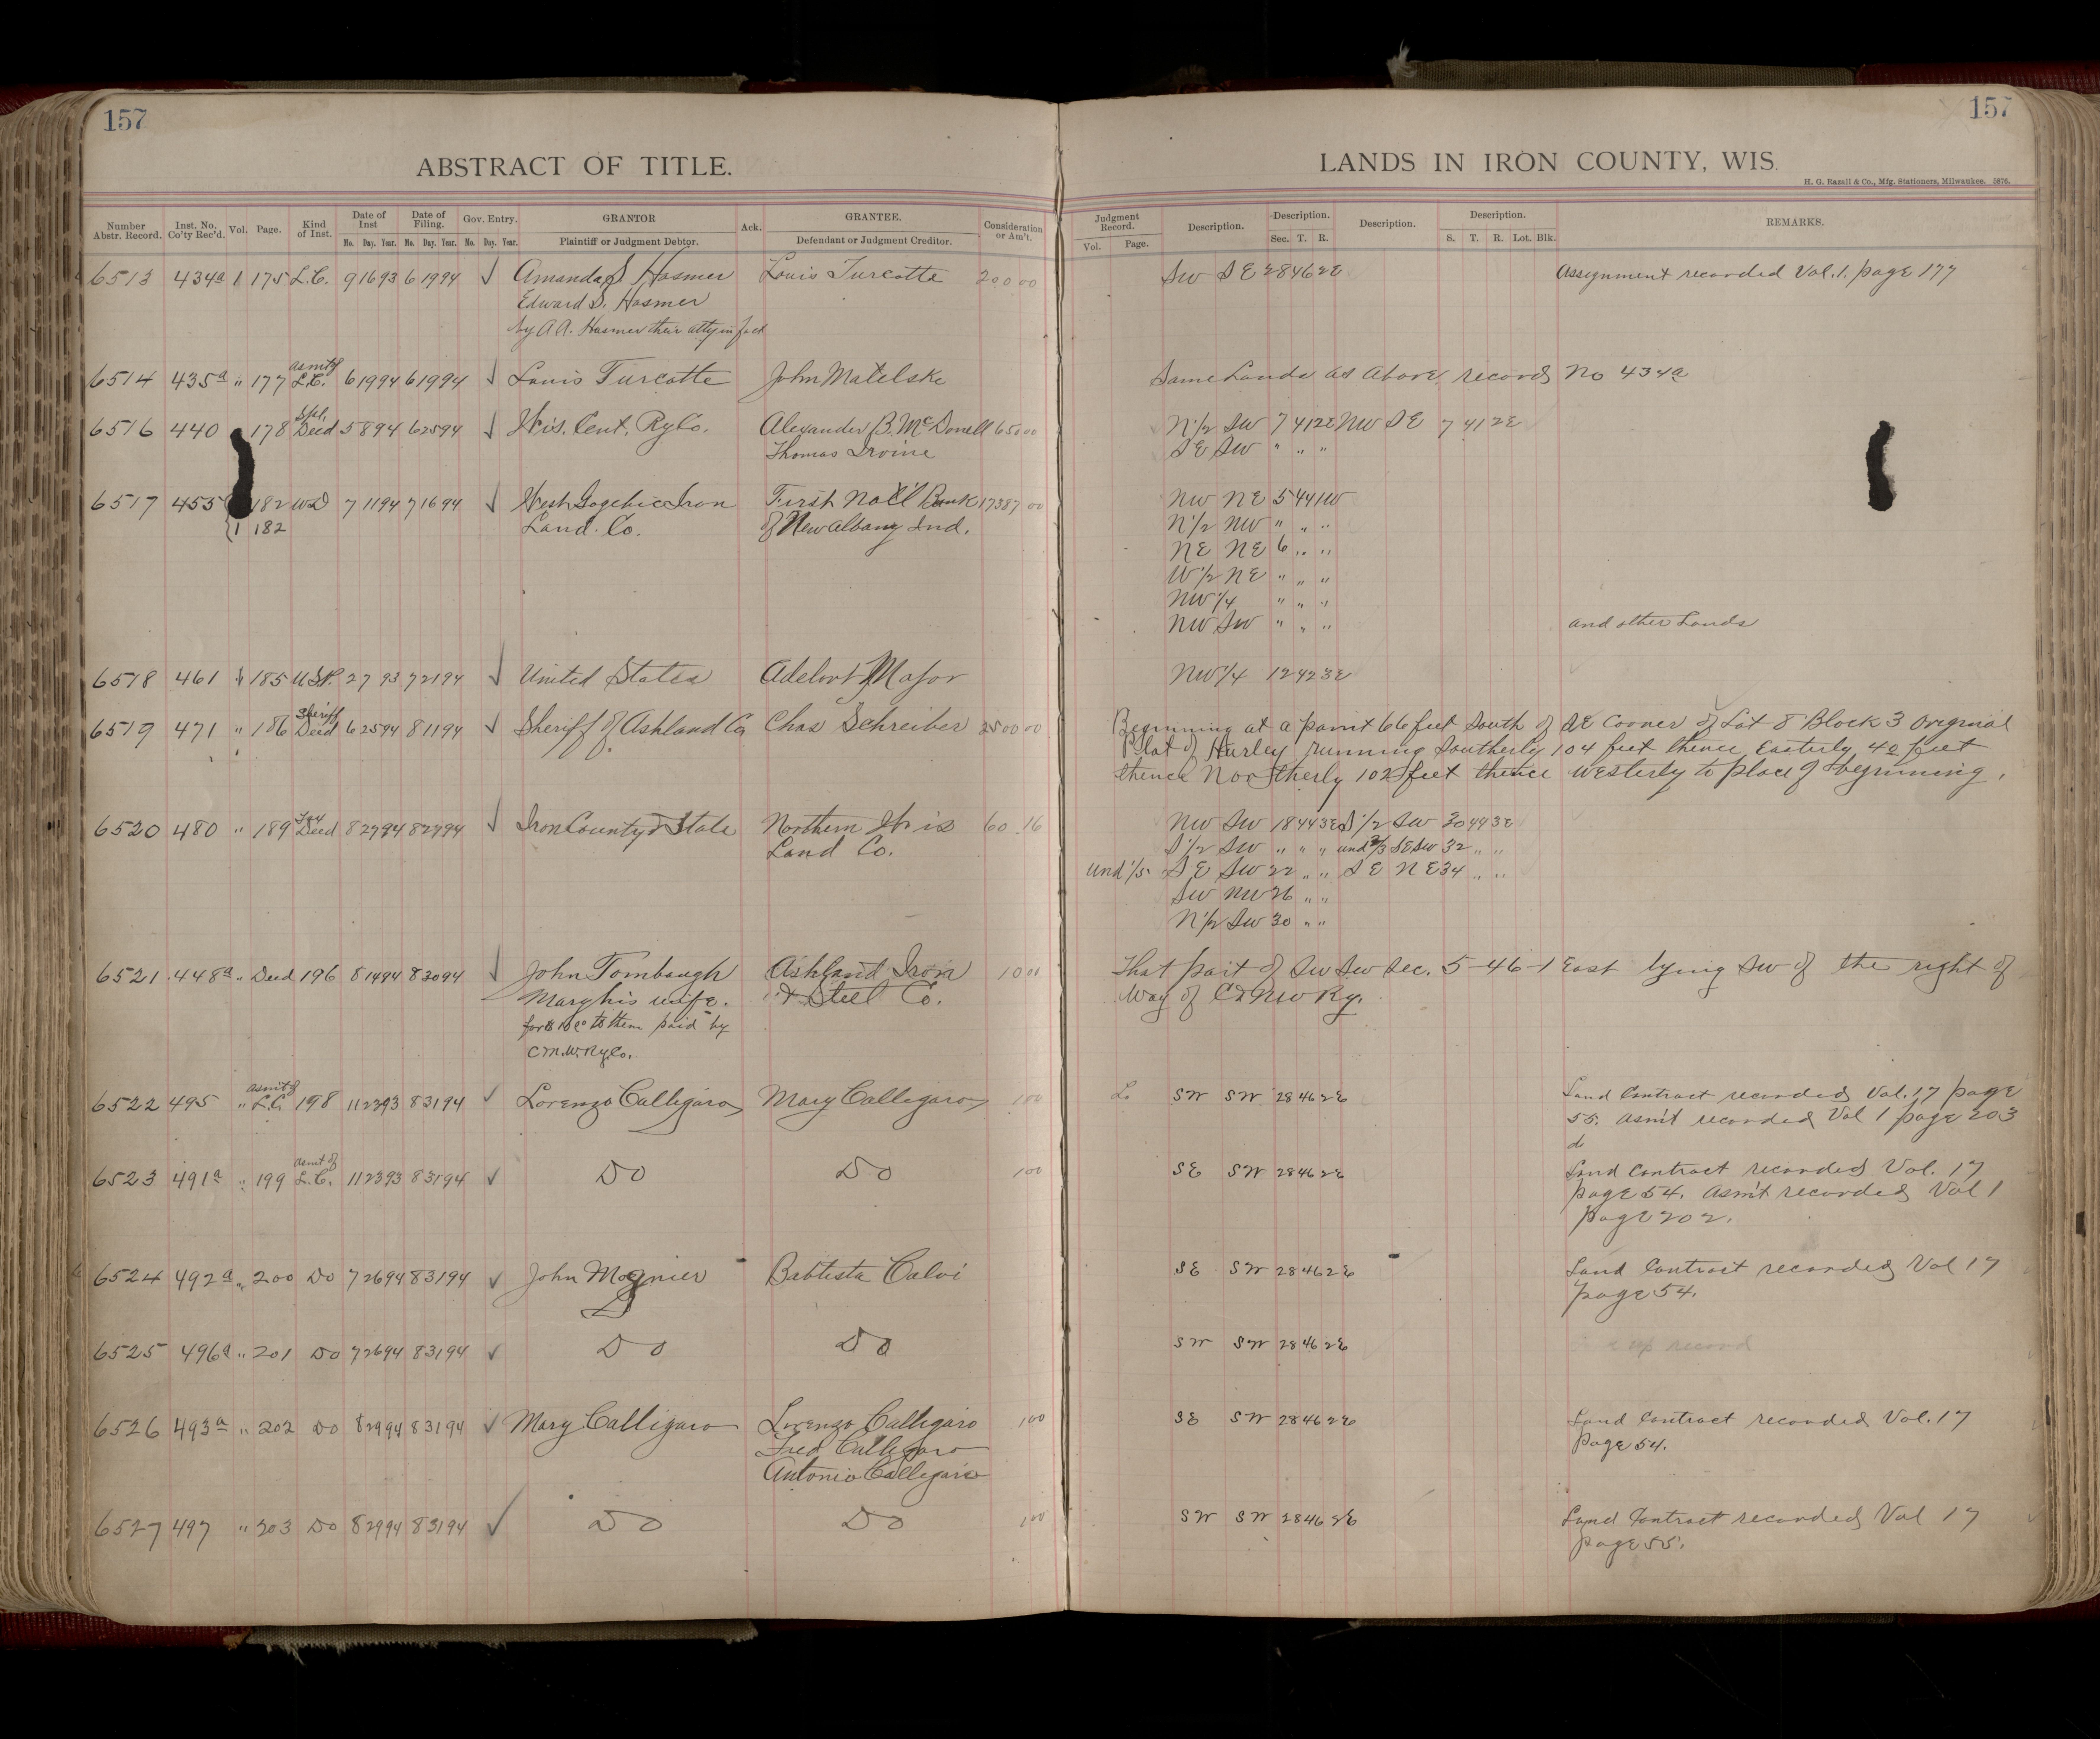 157
157
ABSTRACT OF TITLE.
LANDS IN IRON COUNTY, WIS.
H. G. Razall & Co., Mfg. Stationers, Milwaukee. 5876.
Number Abstr. Record. Inst. No. Co'ty Rec'd. Vol. Page. Kind of Inst. Date of Inst Mo. Day. Year. Date of Filing. Mo. Day. Year. Gov. Entry. Mo. Day. Year. GRANTOR Plaintiff or Judgment Debtor. Ack. GRANTEE. Defendant or Judgment Creditor. Consideration or Am't. Judgment Record. Vol. Page. Description. Description. Sec. T. R. Description. Description. S. T. R. Lot. Blk. REMARKS.
6513 434a 1 175 L.C. 9 16 93 6 19 94 Amanda S Hosmer Louis Turcotte 200 00 SW SE 28 46 2E Assignment recorded Vol. 1. page 177
Edward S. Hosmer
by A.A. Hosmer their atty in fact
6514 435a " 177 Asmt of L.C. 6 19 94 6 19 94 Louis Turcotte John Matelske Same Lands as above record No 434a
6516 440 178 Spl. Deed 5 8 94 6 25 94 Wis. Cent. Ry Co. Alexander B. McDonell 650 00 N1/2 SW 7 41 2E NW SE 7 41 2E
Thomas Irvine SE SW " " "
6517 455 182 WD 7 11 94 7 16 94 West Gogebic Iron First Nat'l Bank 17387 00 NW NE 5 44 1W
1 182 Land. Co. of New Albany Ind. N1/2 NW " " "
NE NE 6 " "
W1/2 NE " " "
NW1/4 " " "
NW SW " " " and other Lands
6518 461 1 185 U.S.P. 2 7 93 7 21 94 United States Adelbert Major NW1/4 12 42 3E
6519 471 " 186 Sheriff Deed 6 25 94 8 11 94 Sheriff of Ashland Co Chas Schreiber 2500 00 Beginning at a point 66 feet South of SE Corner of Lot 8 Block 3 Original
Plat of Hurley running Southerly 104 feet thence Easterly 40 feet
thence Northerly 102 feet thence Westerly to place of beginning.
6520 480 " 189 Tax Deed 8 27 94 8 27 94 Iron County & State Northern Wis 60 16 NW SW 18 44 3E S1/2 SW 30 44 3E
Land Co. S1/2 SW " " " und 2/3 SE SW 32 " "
und 1/5 SE SW 22 " " SE NE 34 " "
SW NW 26 " "
N1/2 SW 30 " "
6521 448a " Deed 196 8 14 94 8 30 94 John Tombaugh Ashland Iron 1 00 That part of SW SW Sec. 5-46-1 East lying SW of the right of
Mary his wife. & Steel Co. Way of C & NW Ry.
to them paid by
6522 495 " Asmt of L.C. 198 11 23 93 8 31 94 Lorenzo Calligaro Mary Calligaro 1 00 L. SW SW 28 46 2E Land Contract recorded Vol. 17 page
55. Asm't recorded Vol 1 page 203
d
6523 491a " 199 Asmt of L.C. 11 23 93 8 31 94 Do Do 1 00 SE SW 28 46 2E Land Contract recorded Vol. 17
page 54. Asm't recorded Vol 1
page 202.
6524 492a " 200 Do 7 26 94 8 31 94 John Babtista Calvi SE SW 28 46 2E Land Contract recorded Vol 17
page 54.
6525 496a " 201 Do 7 26 94 8 31 94 Do Do SW SW 28 46 2E record
6526 493a " 202 Do 8 29 94 8 31 94 Mary Calligaro Lorenzo Calligaro 1 00 SE SW 28 46 2E Land Contract recorded Vol. 17
Fred Calligaro page 54.
Antonio Calligaro
6527 497 " 203 Do 8 29 94 8 31 94 Do Do 1 00 SW SW 28 46 2E Land Contract recorded Vol 17
page 55.